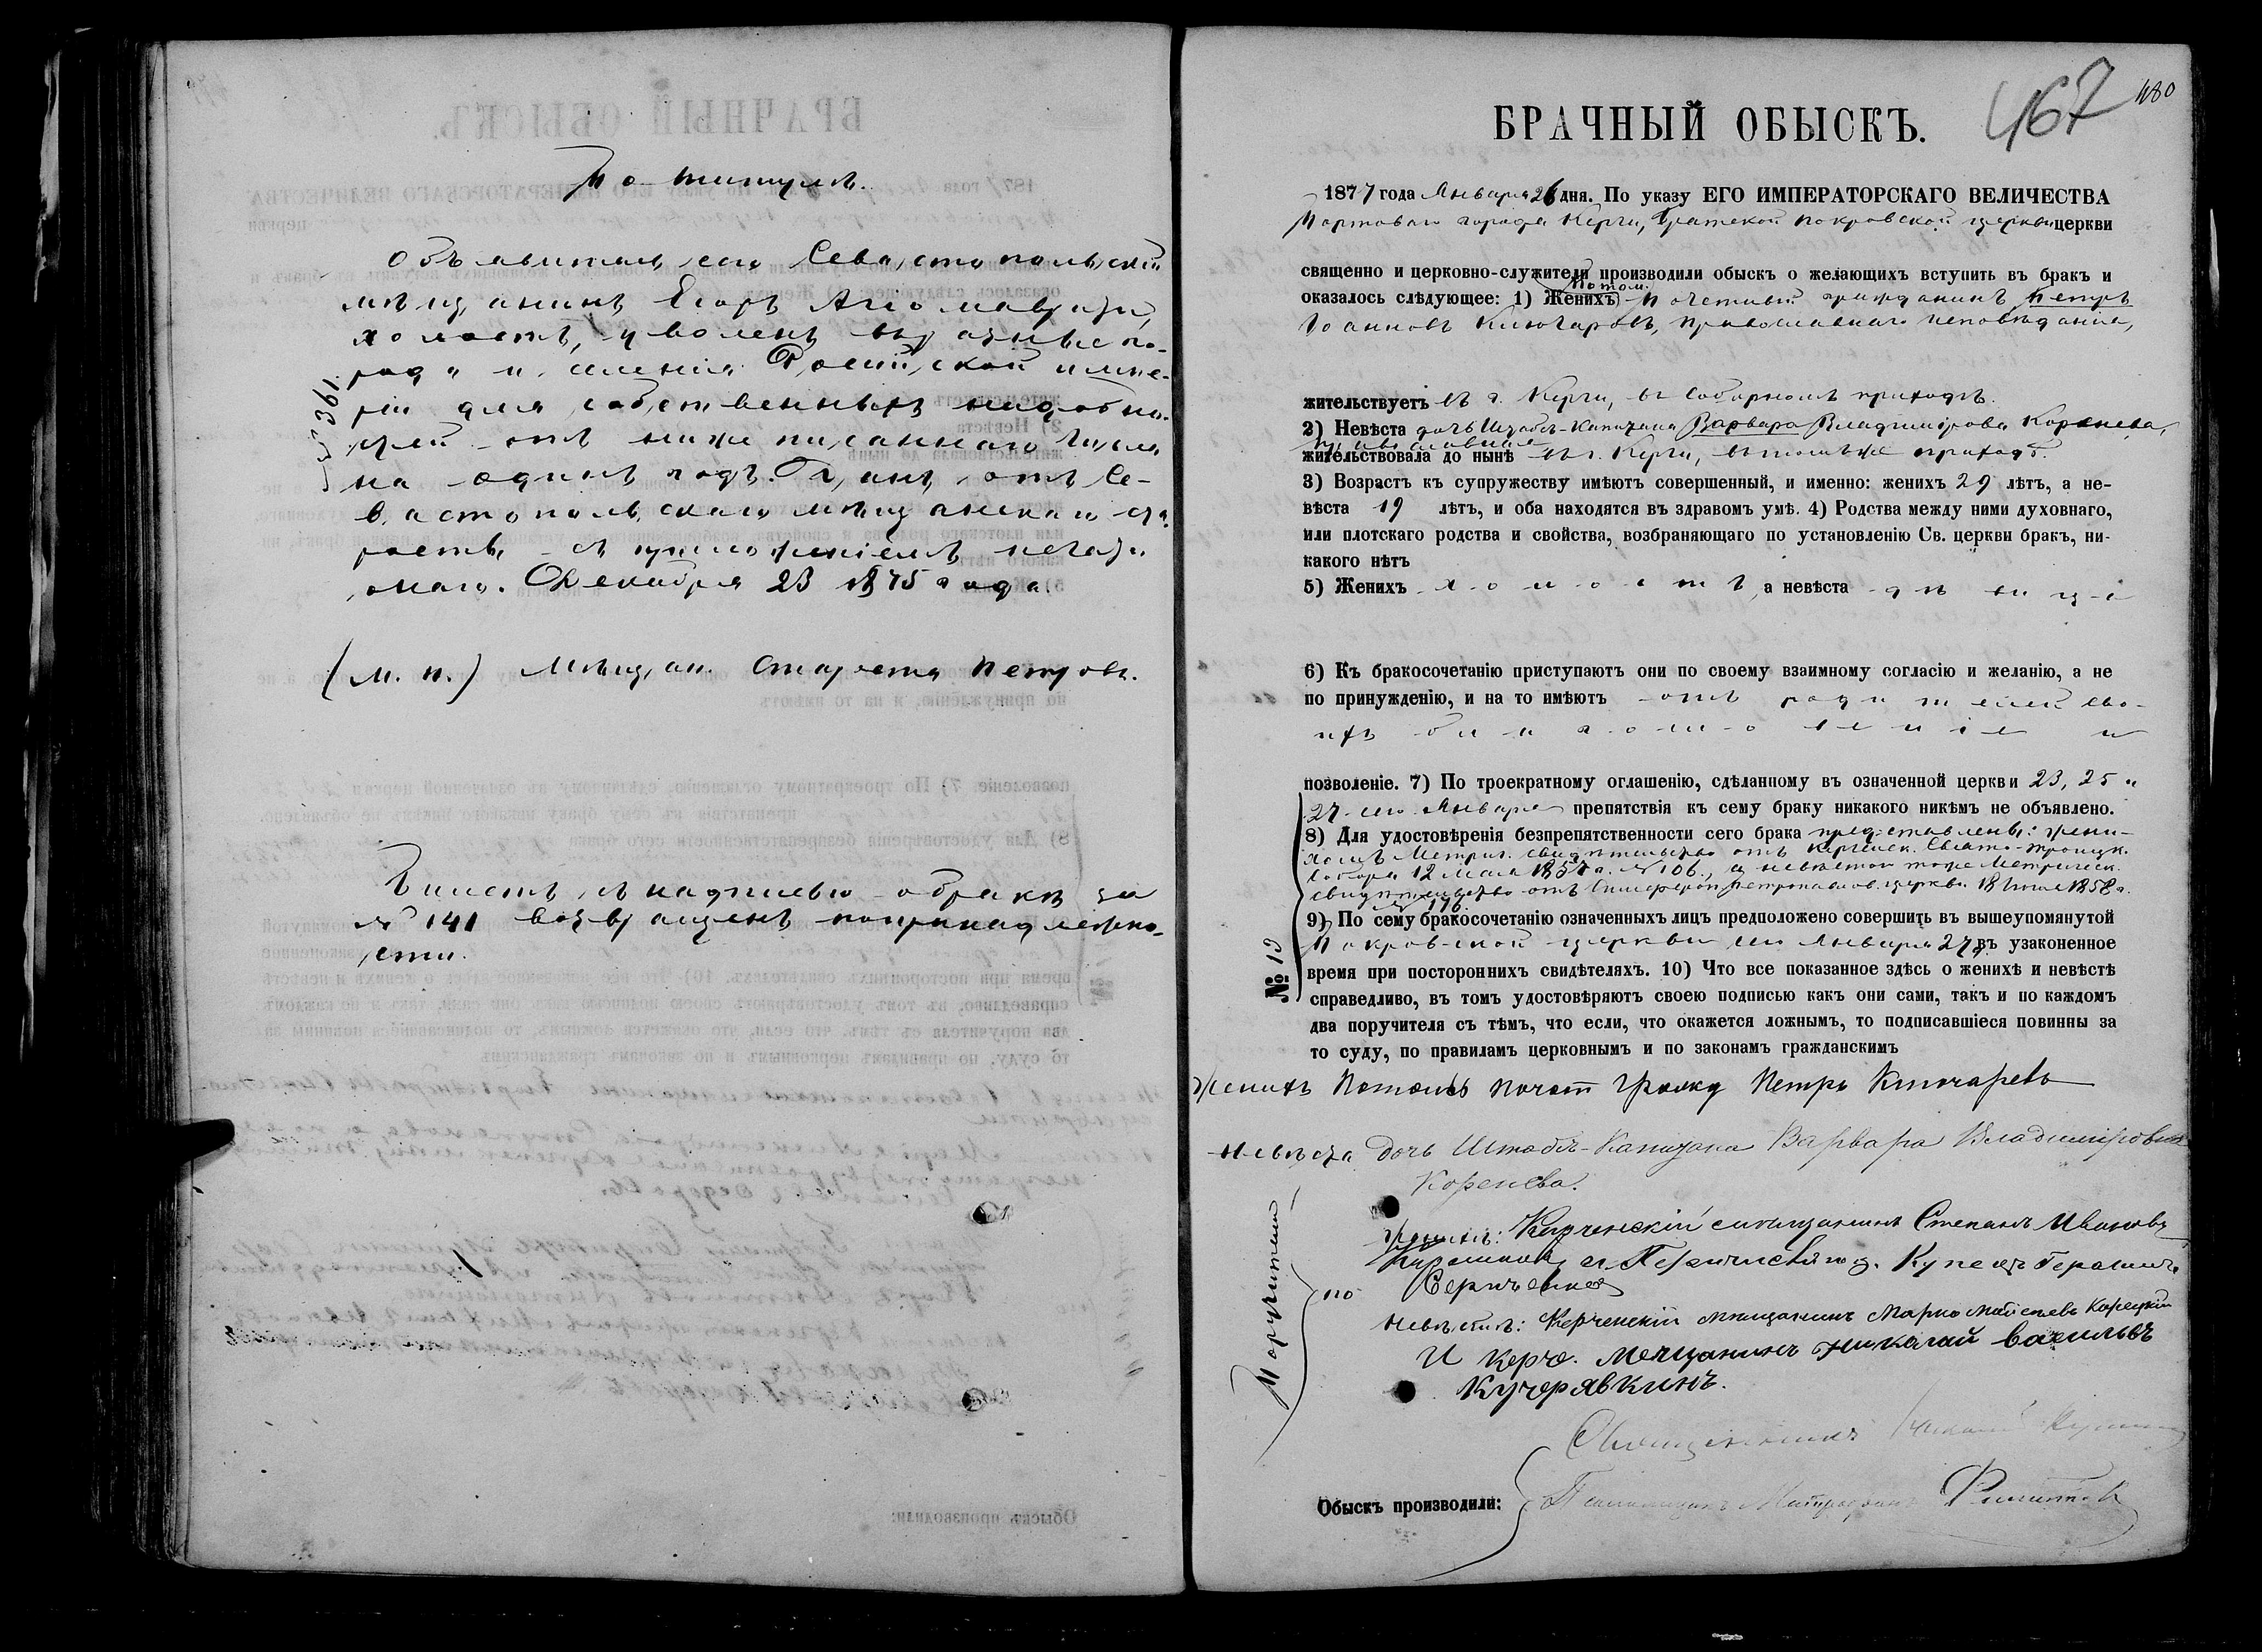 По титулѣ.
Объявитель сего Севастопольскій
мѣщанинъ Егоръ
холостъ, уволенъ въ разные го-
рода и селенія Россійской импе-
ріи для собственныхъ надобно-
стей отъ нижеписаннаго числа
на одинъ годъ. Данъ отъ Се-
вастопольскаго мѣщанскаго ста-
росты съ приложеніемъ печати
Декабря 23 1875 года.
№ 361.
(М. П.) Мѣщан. Староста Петровъ.
Билетъ съ надписью о бракѣ за
№ 141 возвращенъ по принадлежно-
сти.
467 480
БРАЧНЫЙ ОБЫСКЪ.
1877 года Января 26 дня. По указу ЕГО ИМПЕРАТОРСКАГО ВЕЛИЧЕСТВА
Портоваго города Керчи, Братской Покровской церкви церкви
священно и церковно-служители производили обыскъ о желающихъ вступить въ бракъ и
оказалось слѣдующее: 1) Женихъ Потом. почетный гражданинъ Петръ
Іоанновъ Ключаровъ, православнаго исповѣданія,
жительствуетъ въ г. Керчи, въ Соборномъ приходѣ.
2) Невѣста дочь Штабсъ-Капитана Варвара Владимірова Коренева,
православная
жительствовала до нынѣ въ г. Керчи, въ томъ же приходѣ.
3) Возрастъ къ супружеству имѣютъ совершенный, и именно: женихъ 29 лѣтъ, а не-
вѣста 19 лѣтъ, и оба находятся въ здравомъ умѣ. 4) Родства между ними духовнаго,
или плотскаго родства и свойства, возбраняющаго по установленію Св. церкви бракъ, ни-
какого нѣтъ
5) Женихъ холостъ, а невѣста дѣвица
6) Къ бракосочетанію приступаютъ они по своему взаимному согласію и желанію, а не
по принужденію, и на то имѣютъ отъ родителей сво-
ихъ благословеніе и
позволеніе. 7) По троекратному оглашенію, сдѣланному въ означенной церкви 23, 25 и
27 сего Января препятствія къ сему браку никакого никѣмъ не объявлено.
8) Для удостовѣренія безпрепятственности сего брака представлены: жени-
хомъ Метрич. свидѣтельство отъ Керченск. Свято-Троицк.
Собора 12 Мая 1857 г. № 106, а невѣстой тоже Метрическ.
свидѣтельство отъ Симфероп. Петропавлов. церкви 18 1858 г.
№ 116.
9) По сему бракосочетанію означенныхъ лицъ предположено совершить въ вышеупомянутой
Покровской церкви сего Января 27, въ узаконенное
время при постороннихъ свидѣтеляхъ. 10) Что все показанное здѣсь о женихѣ и невѣстѣ
справедливо, въ томъ удостовѣряютъ своею подписью какъ они сами, такъ и по каждомъ
два поручителя съ тѣмъ, что если, что окажется ложнымъ, то подписавшіеся повинны за
то суду, по правиламъ церковнымъ и по законамъ гражданскимъ
№ 19
Женихъ Потомъ почет гражд Петръ Ключаревъ
Невѣста Дочь Штабсъ-Капитана Варвара Владимировна
Коренева.
Поручители
по
Женихѣ: Керченскій мѣщанинъ Степанъ Ивановъ
Купецъ Герасимъ
Невѣстѣ: Керченскій мѣщанинъ Марко
И Керче. Мещанинъ Николай Васильвъ
Кучерявкинъ.
Священникъ
Обыскъ производили: